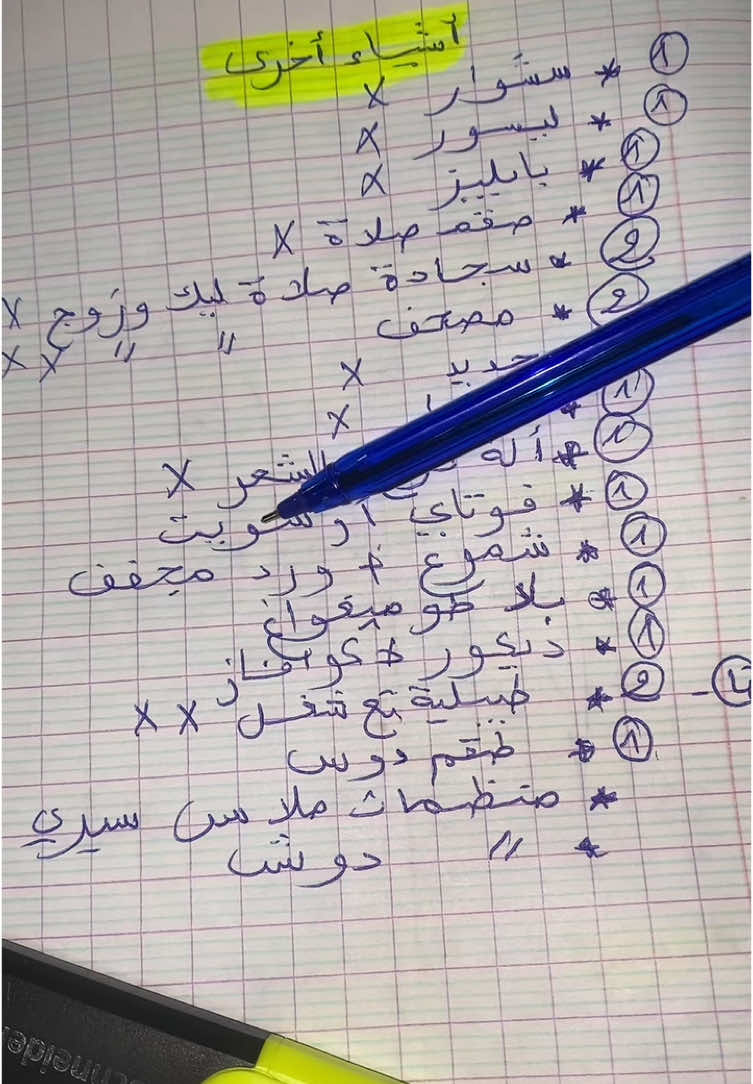 أشياء أخرى
① * سشوار X
① * ليسور X
① * بابليز X
① * طقم صلاة X
② * سجادة صلاة ليك وزوج X
② * مصحف " " X X
حديد X
① * X
① * ألة الشعر X
① * فوتاي أو سويت
① * شموع + ورد مجفف
① * بلاطو ميغواغ
① * ديكور لاكوافاز
② * طبلية تع شغل X X
① * طقم دوس
* منظمات ملابس سيري
* " دوش
schneider